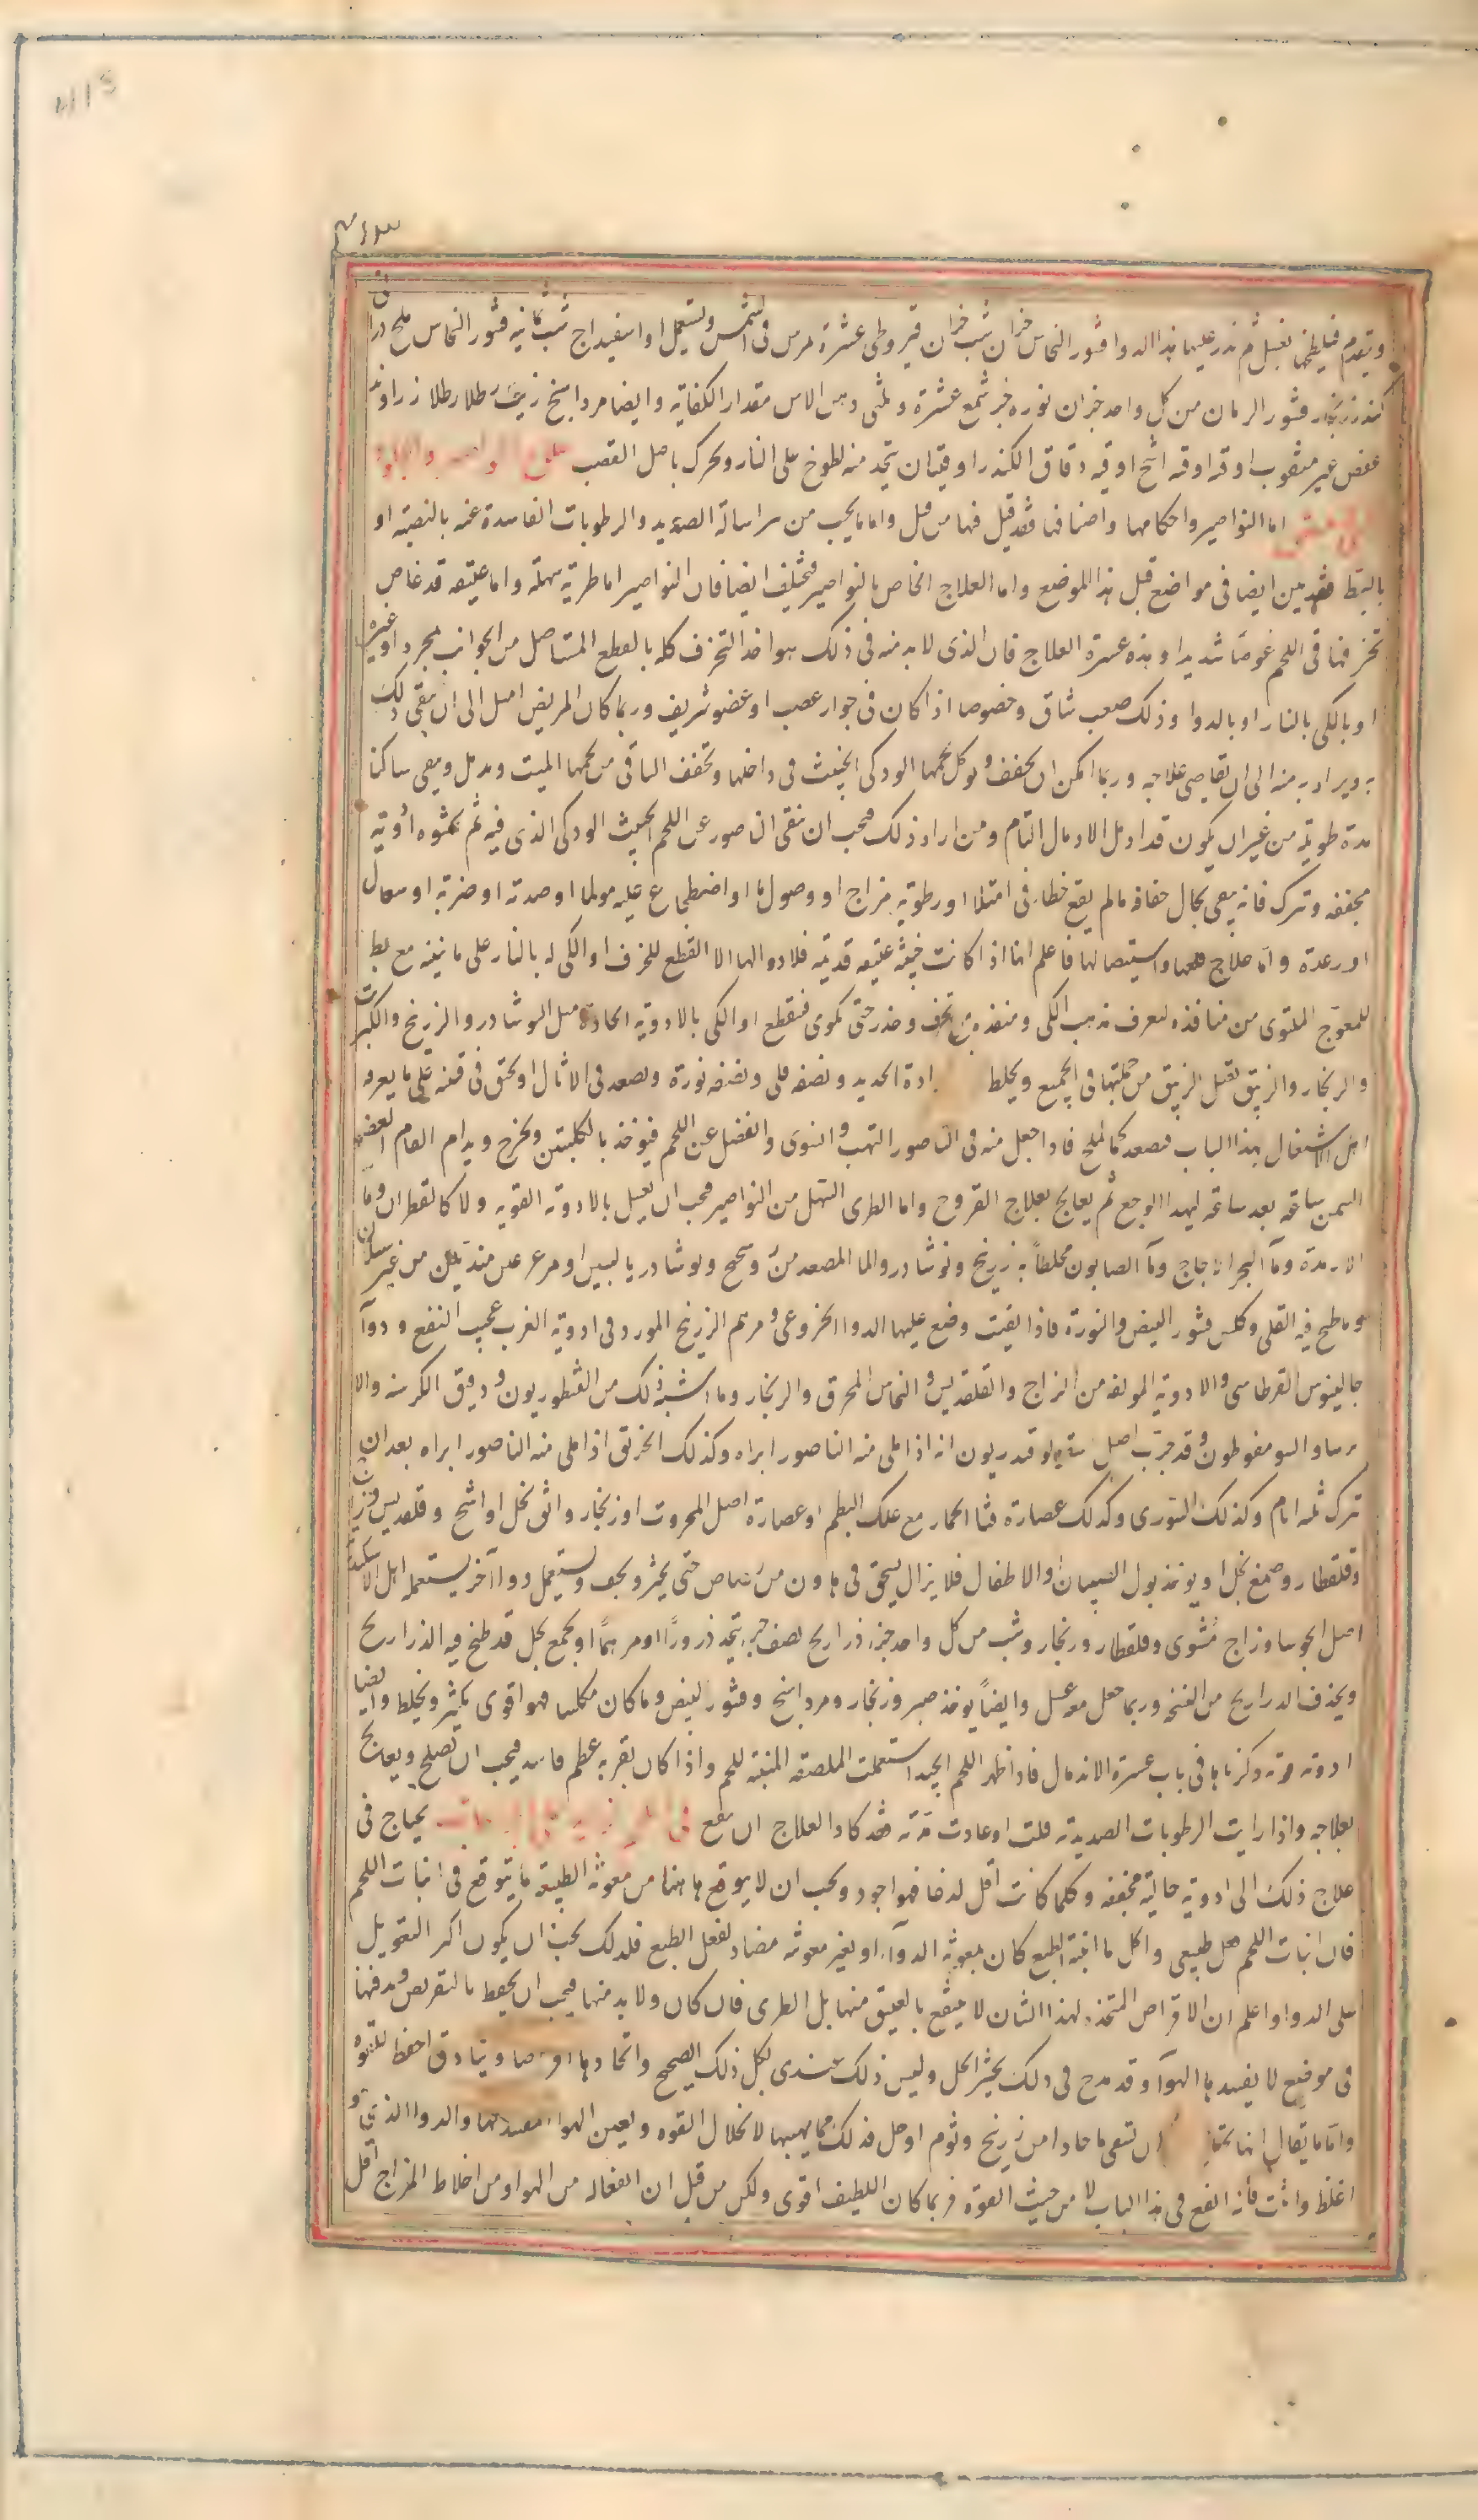 ويقدم فيلطخها بعسل ثم يذر عليها هذا الدوا قشور النحاس جزان شب جزان قيروطى عشرة يمرس فى الشمس ويستعمل او اسفيداج شب ثمانيه قشور النحاس ملح دراانى
كندر زنجار قشور الرمان من كل واحد جزان نوره جز شمع عشرة وثلثى دهن الاس مقدار الكفاية وايضا مرداسنج زيت رطلا رطلا زراوند
عفص غير مثقوب اوقه اوقه اشج اوقيه دقاق الكندر اوقيتان يتخذ منه لطوخ على النار ويحرك باصل القصب
اما النواصير واحكامها واصنافها فقد قيل فيها من قبل واما ما يجب من اسالة الصديد والرطوبات الفاسدة عنه بالنصبة او
بالبط فقد بين ايضا فى مواضع قبل هذا الموضع واما العلاج الخاص بالنواصير فمختلف ايضا فان النواصير اما طرية سهلة واما عتيقه قد غاص
تخزفها فى اللحم غوصا شديدا وهذه عسرة العلاج فان الذى لا بد منه فى ذلك هو اخذ التخزف كله بالقطع المتاصل من الجوانب بمجرد او غيره
او بالكى بالنار او بالدوا وذلك صعب شاق وخصوصا اذا كان فى جوار عصب او عضو شريف وربما كان المريض اميل الى ان يبقى ذلك
به ويراد به منه الى ان يقاصى علاجه وربما امكن ان يجفف ويوكل لحمها الودكى الخبيث فى داخلها وتجفف الباقى من لحمها الميت ويدمل ويبقى ساكنا
مدة طويلة من غير ان يكون قد ادمل الادمال التام ومن اراد ذلك فيجب ان ينقى الناصور عن اللحم الخبيث الودكى الذى فيه ثم تحشوه ادوية
مجففه وتترك فانه يبقى بحال جفافه ما لم يقع خطاء فى امتلا او رطوبة مزاج او وصول ما او اضطجاع عليه مولما او صدمة او ضربة او سعال
او رعدة واما علاج قلعها واستيصالها فاعلم انها اذا كانت خبيثه عتيقه قديمه فلا دوا لها الا القطع للخزف او الكى له بالنار على ما نبينه مع بط
للمعوج الملتوى من منافذه ليعرف مذهب الكى ومنفذه مع تحرف وحذر حتى يكوى فيقطع او الكى بالادوية الحادة مثل النوشادر والزرنيخ والكبريت
والزنجار والزيبق يقتل الزيبق من جملتها فى الجميع ويخلط ادة الحديد ونصفه قلى ونصفه نورة ويصعد فى الاثال او يحق فى قنينه على ما يعرفه
اهل الاشتغال بهذا الباب فيصعد كالملح فاذا جعل منه فى الناصور التهب والتوى وانفصل عن اللحم فيوخذ بالكلبتين ويخرج ويدام القام العضو
السمن ساعة بعد ساعة ليهدا الوجع ثم يعالج بعلاج القروح واما الطرى السهل من النواصير فيجب ان يغسل بالادوية القويه ولا كالقطران وما
الارمدة وما البحر الاجاج وما الصابون مخلطا به زرنيخ ونوشادر والما المصعد من
وما طبخ فيه القلى وكلس قشور البيض والنورة فاذا نقيت وضع عليها الدوا الخروعى ومرهم الزرنيخ المورد فى ادوية الغرب عجيب النفع ودوآ
جالينوس القرطاسى والادوية المولفه من الزاج والقلقديس والنحاس المحرق والزنجار وما اشبه ذلك من القنطوريون ودقيق الكرسنه والا
يرسا والسومقوطون وقد جرب اصل انه اذا ملى منه الناصور ابراه وكذلك الخربق اذا ملى منه الناصور ابراه بعد ان
يترك ثلثه ايام وكذلك السورى وكذلك عصارة قثا الحمار مع علك البطم او عصارة اصل المحروت او زنجار واشق بخل او اشج وقلقديس وزرنيخ
وقلقطار وصمغ بخل او يوخذ بول الصبيان والاطفال فلا يزال يسحق فى هاون من رصاص حتى يخثر ويجف ويستعمل دوا آخر يستعمله اهل الاسكندرية
اصل الجوسا وزاج مشوى وقلقطار وزنجار وشب من كل واحد جزء ذراريح نصف جزء يتخذ ذرورا او مرهما او يجمع بخل قد طبخ فيه الذراريح
ويحذف الذراريح من النسخة وربما جعل معه عسل وايضا يوخذ صبر وزنجار ومرداسنج وقشور البيض وما كان مكلسا فهو اقوى يكثر ويخلط وايضا
ادوية قوية ذكرناها فى باب عسرة الاندمال فاذا ظهر اللحم الجيد استعملت الملصقه المنبتة للحم واذا كان بقربه عظم فاسد فيجب ان يصلح ويعالج
بعلاجه واذا رايت الرطوبات الصديدية قلت او عادت مدة فقد كاد العلاج ان ينفع يحتاج فى
علاج ذلك الى ادوية جالية مجففه وكلما كانت اقل لذعا فهو اجود ويجب ان لا يتوقع هاهنا من معونة الطبيعة ما يتوقع فى انبات اللحم
فان انبات اللحم فعل طبيعى واكل ما انبته الطبع كان بمعونة الدوآء او بغير معونه مضاد لفعل الطبع فلذلك يجب ان يكون اكثر التعويل
على الدوا واعلم ان الاقراص المتخذه لهذا الشان لا ينتفع بالعتيق منها بل الطرى فان كان ولا بد منها فيجب ان يحفظ بالتقريص ودفنها
فى موضع لا يفسدها الهوآ وقد مدح فى ذلك بخثر الخل وليس ذلك عندى بكل ذلك الصحيح واتخاذها اقراصا وبنادق احفظ للقوه
واما ما يقال انها تحتاج ان تسقى ما حادا من زرنيخ وثوم او خل فذلك مما يهيبها لانحلال القوه ويعين الهوا والدوا الذى هو
اغلظ واثبت فانه انفع فى هذا الباب لا من حيث القوة فربما كان اللطيف اقوى ولكن من قبل ان انفعاله من الهوا ومن اخلاط المزاج اقل